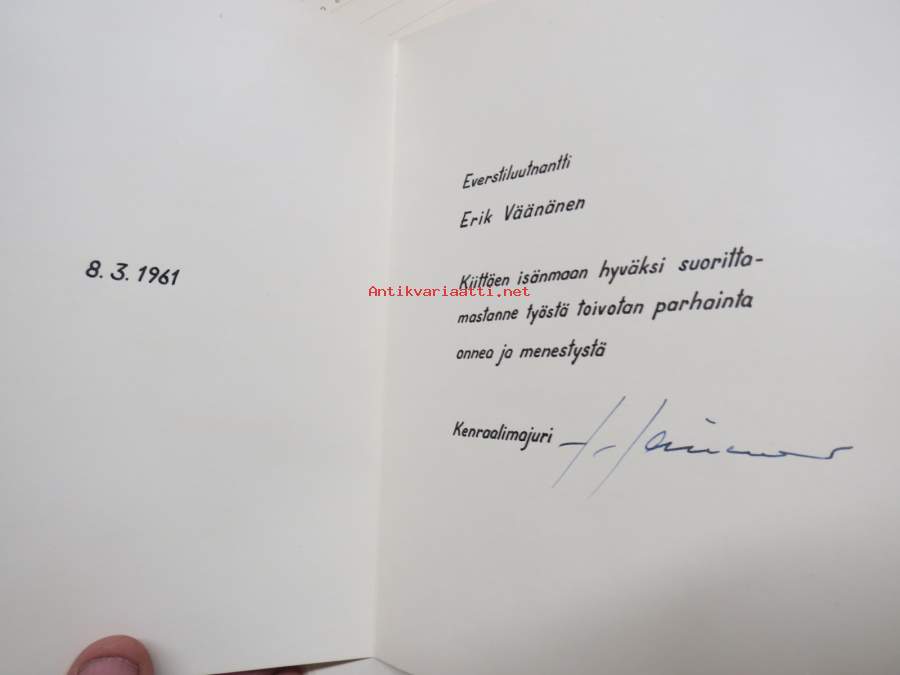 8. 3. 1961
Everstiluutnantti
Erik Väänänen
Kiittäen isänmaan hyväksi suoritta-
mastanne työstä toivotan parhainta
onnea ja menestystä
Kenraalimajuri
Antikvariaatti.net